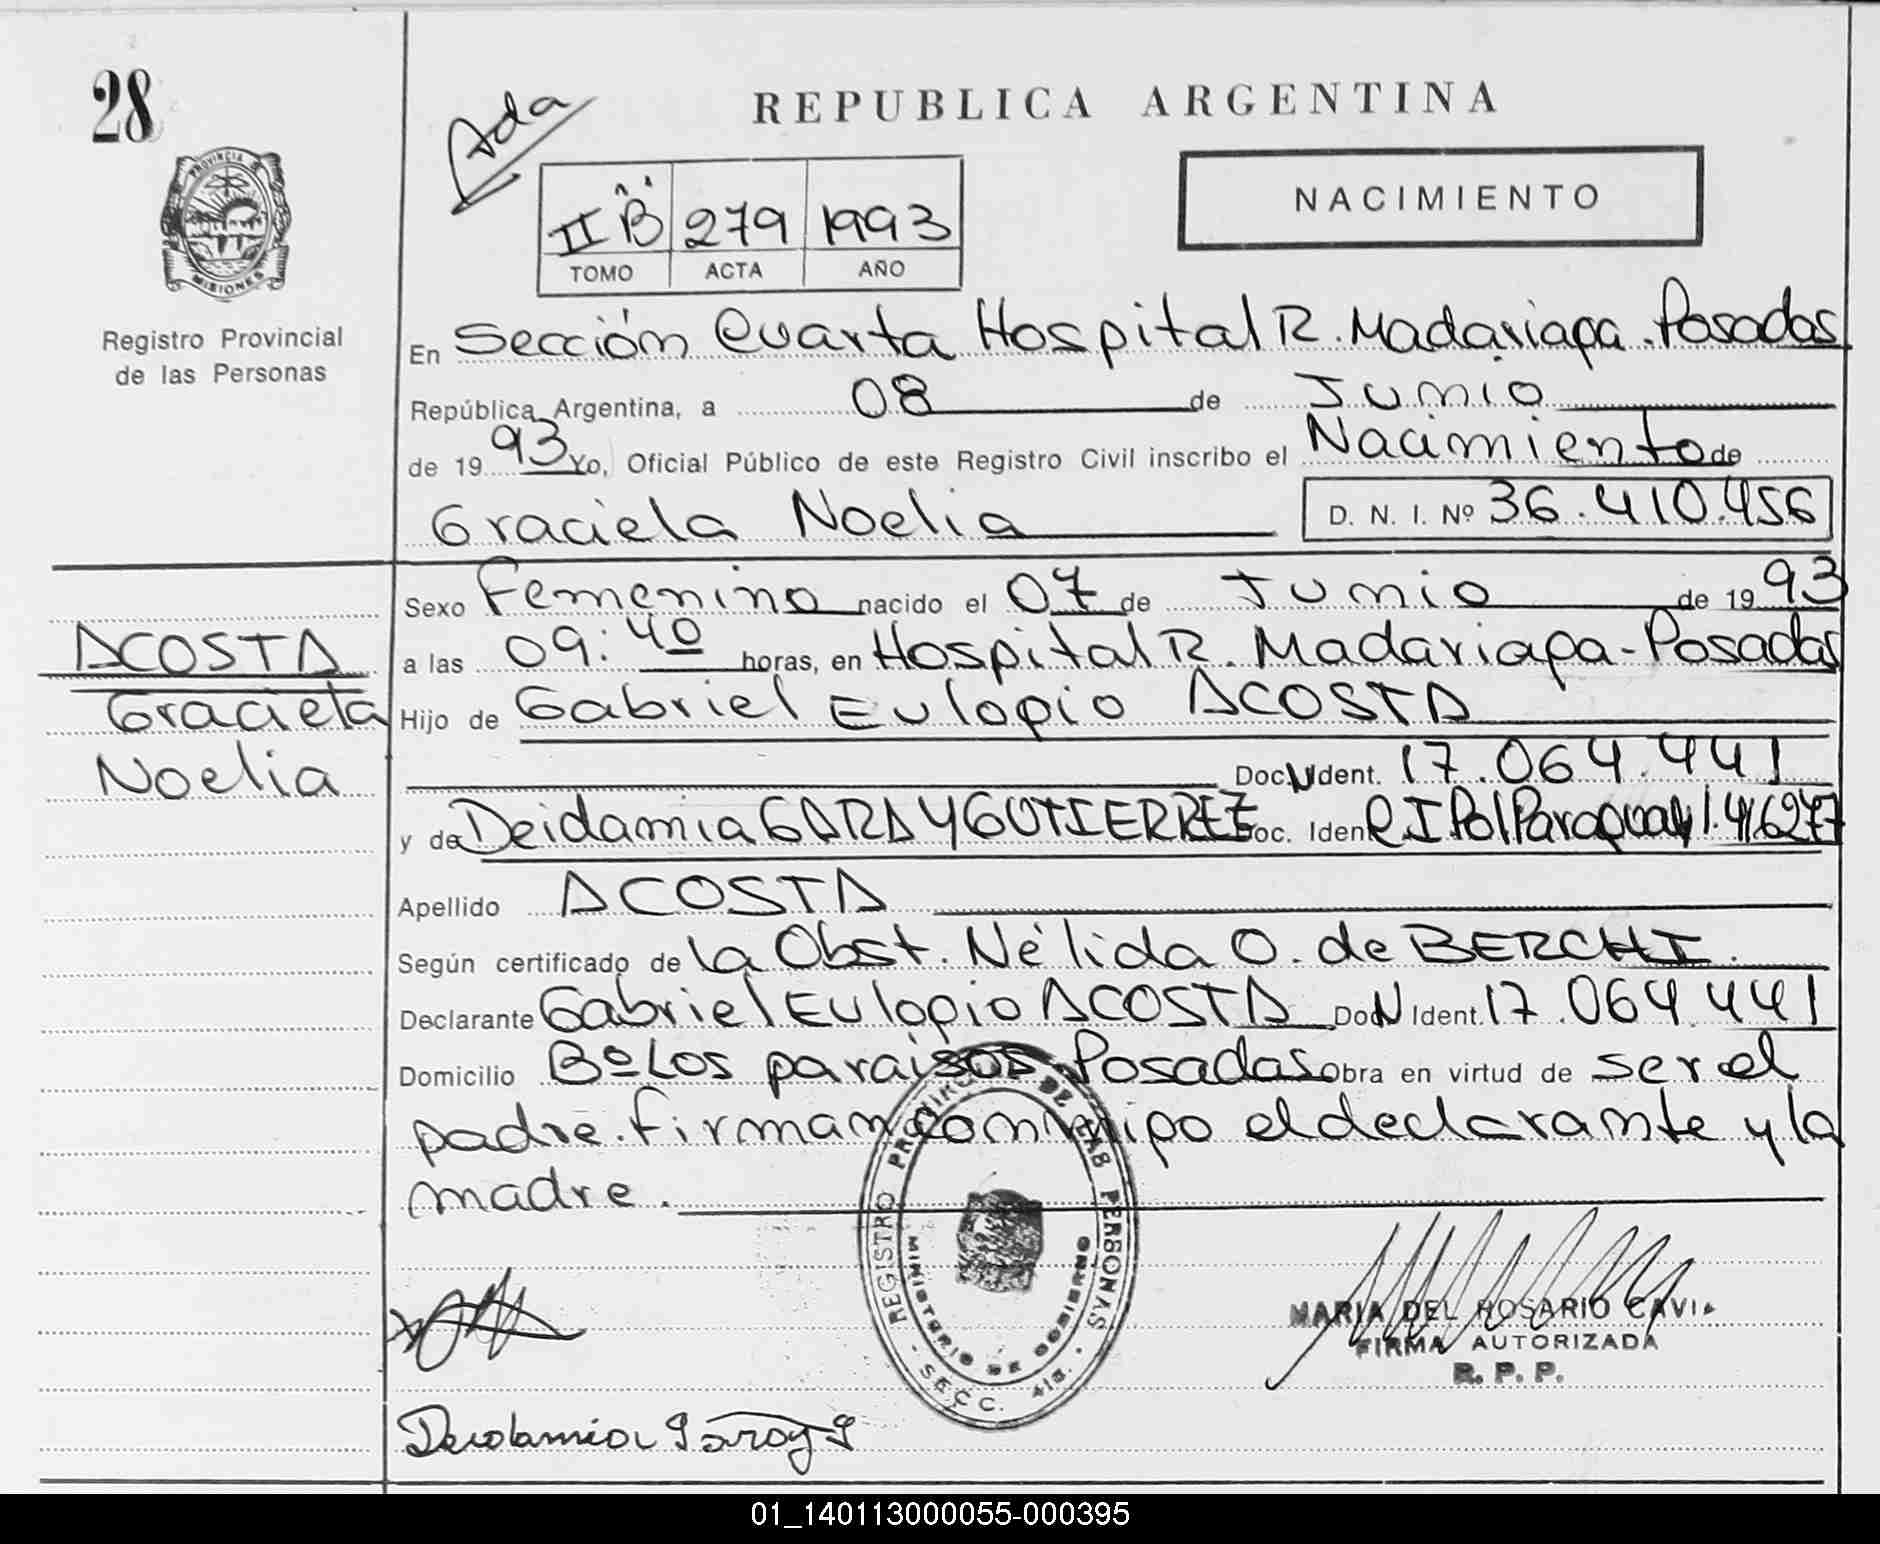 28
Ada
REPUBLICA ARGENTINA
NACIMIENTO
II "B" 279 1993
TOMO ACTA AÑO
PROVINCIA DE MISIONES
Registro Provincial
de las Personas
En Sección Cuarta Hospital R. Madariaga. Posadas
República Argentina, a 08 de Junio
de 1993 Yo, Oficial Público de este Registro Civil inscribo el Nacimiento de
Graciela Noelia D. N. I. Nº 36.410.456
Sexo Femenino nacido el 07 de Junio de 1993
ACOSTA
Graciela
Noelia
a las 09:40 horas, en Hospital R. Madariaga-Posadas
Hijo de Gabriel Eulogio ACOSTA
Doc. N Ident. 17.064.441
y de Deidamia GARAY GUTIERREZ Doc. Ident. C I Pol Paraguay
Apellido ACOSTA
Según certificado de la Obst. Nélida O. de BERCHI.
Declarante Gabriel Eulogio ACOSTA Doc N Ident. 17.064.441
Domicilio Bº Los paraisos Posadas obra en virtud de ser el
padre. firman conmigo el declarante y la
madre.
REGISTRO PROVINCIAL DE LAS PERSONAS
MINISTERIO DE GOBIERNO
SECC. 4ta.
MARIA DEL ROSARIO CAVIA
FIRMA AUTORIZADA
R. P. P.
Deidamia Garay G
01_140113000055-000395